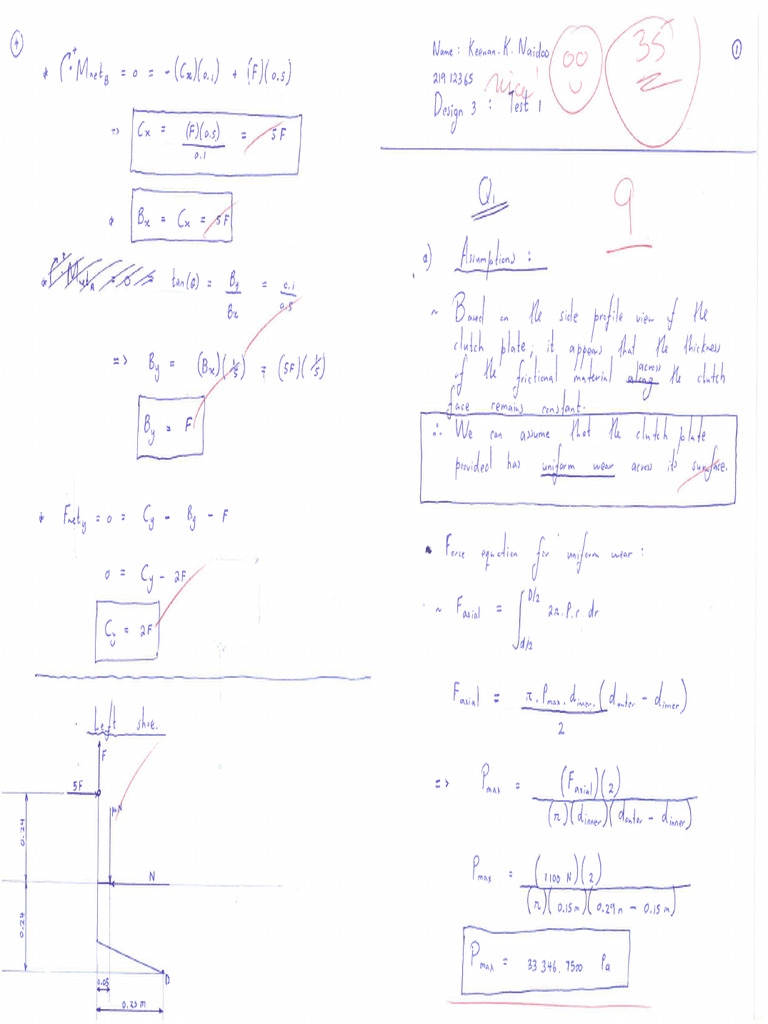 4
* ↷+ Mnet_B = 0 = -(Cx)(0.1) + (F)(0.5)
=> Cx = (F)(0.5) / 0.1 = 5F
* Bx = Cx = 5F
tan(θ) = By / Bx = 0.1 / 0.5
=> By = (Bx)(1/5) = (5F)(1/5)
By = F
* Fnet_y = 0 = Cy - By - F
0 = Cy - 2F
Cy = 2F
Left shoe.
F
5F
μN
0.24
N
0.24
D
0.05
0.25 m
1
Name: Keenan.K.Naidoo
21912365
Design 3 : Test 1
nice!
35
Q1
9
a) Assumptions :
~ Based on the side profile view of the
clutch plate; it appears that the thickness
of the frictional material across the clutch
face remains constant.
∴ We can assume that the clutch plate
provided has uniform wear across its surface.
~ Force equation for uniform wear :
~ Faxial = ∫ D/2 d/2 2π.P.r dr
Faxial = π.Pmax.dinner.(douter - dinner) / 2
=> Pmax = (Faxial)(2) / (π)(dinner)(douter - dinner)
Pmax = (1100 N)(2) / (π)(0.15m)(0.29m - 0.15m)
Pmax = 33 346.7500 Pa